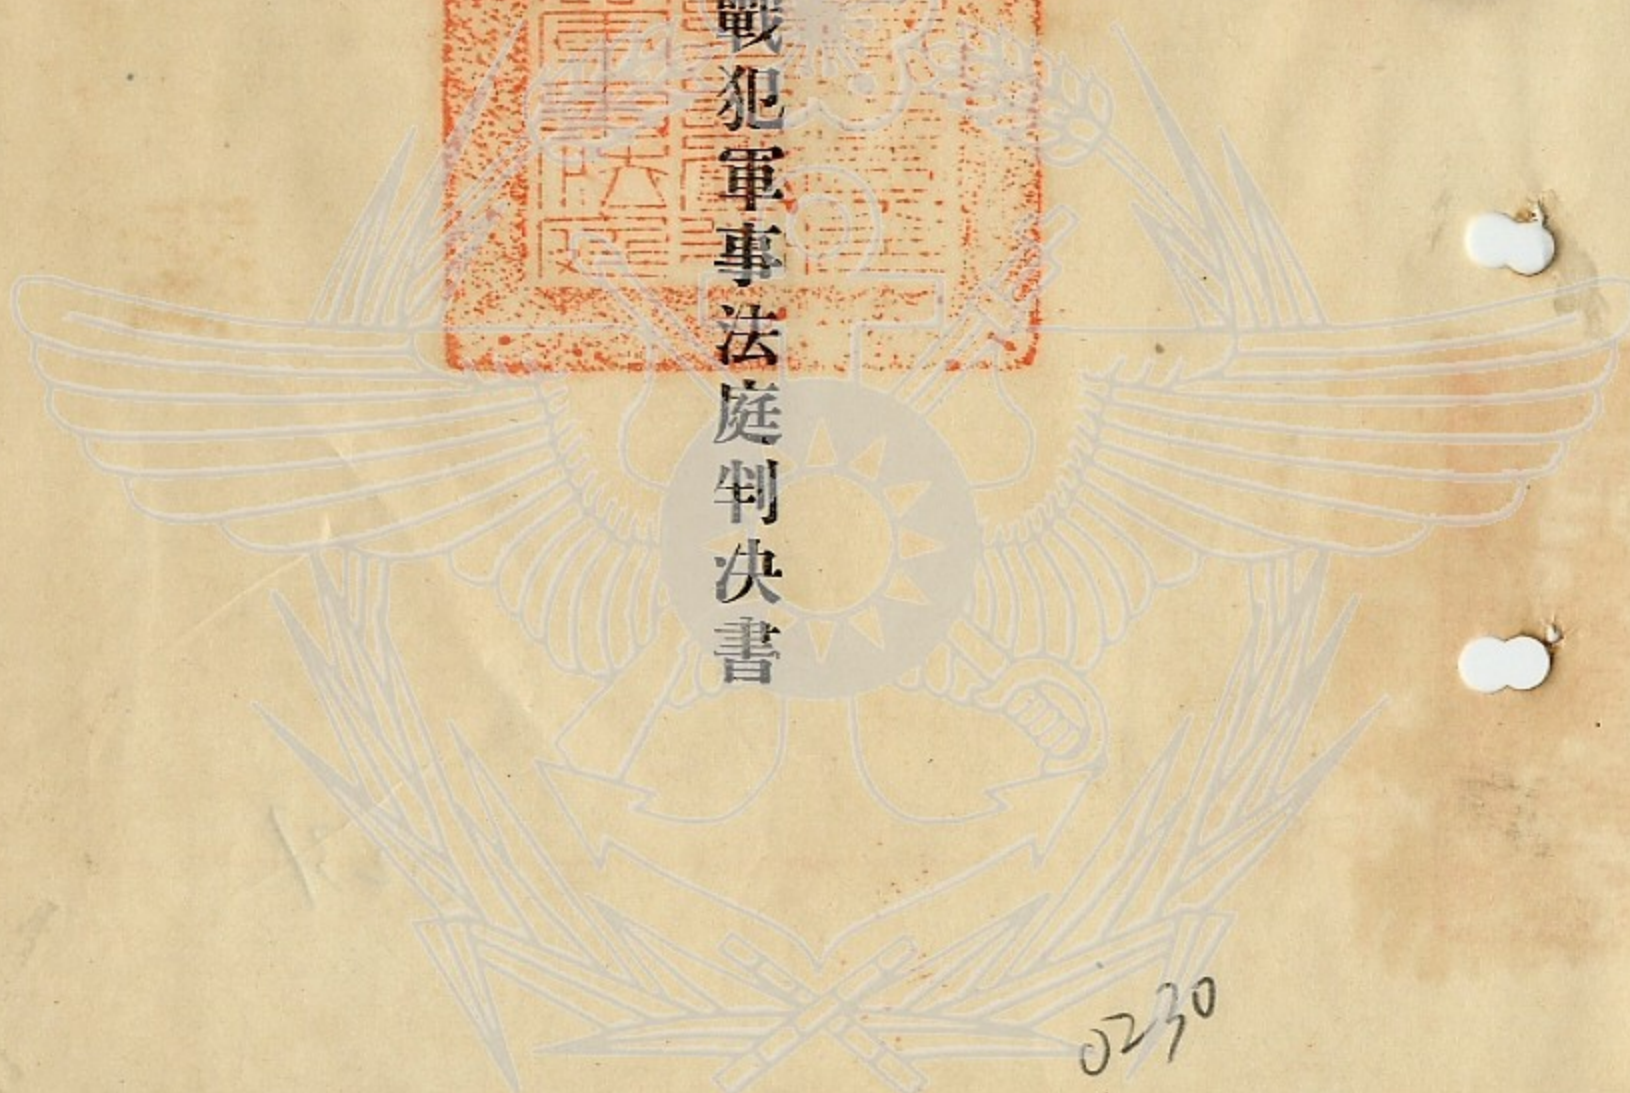 戰犯軍事法庭判决書
0230